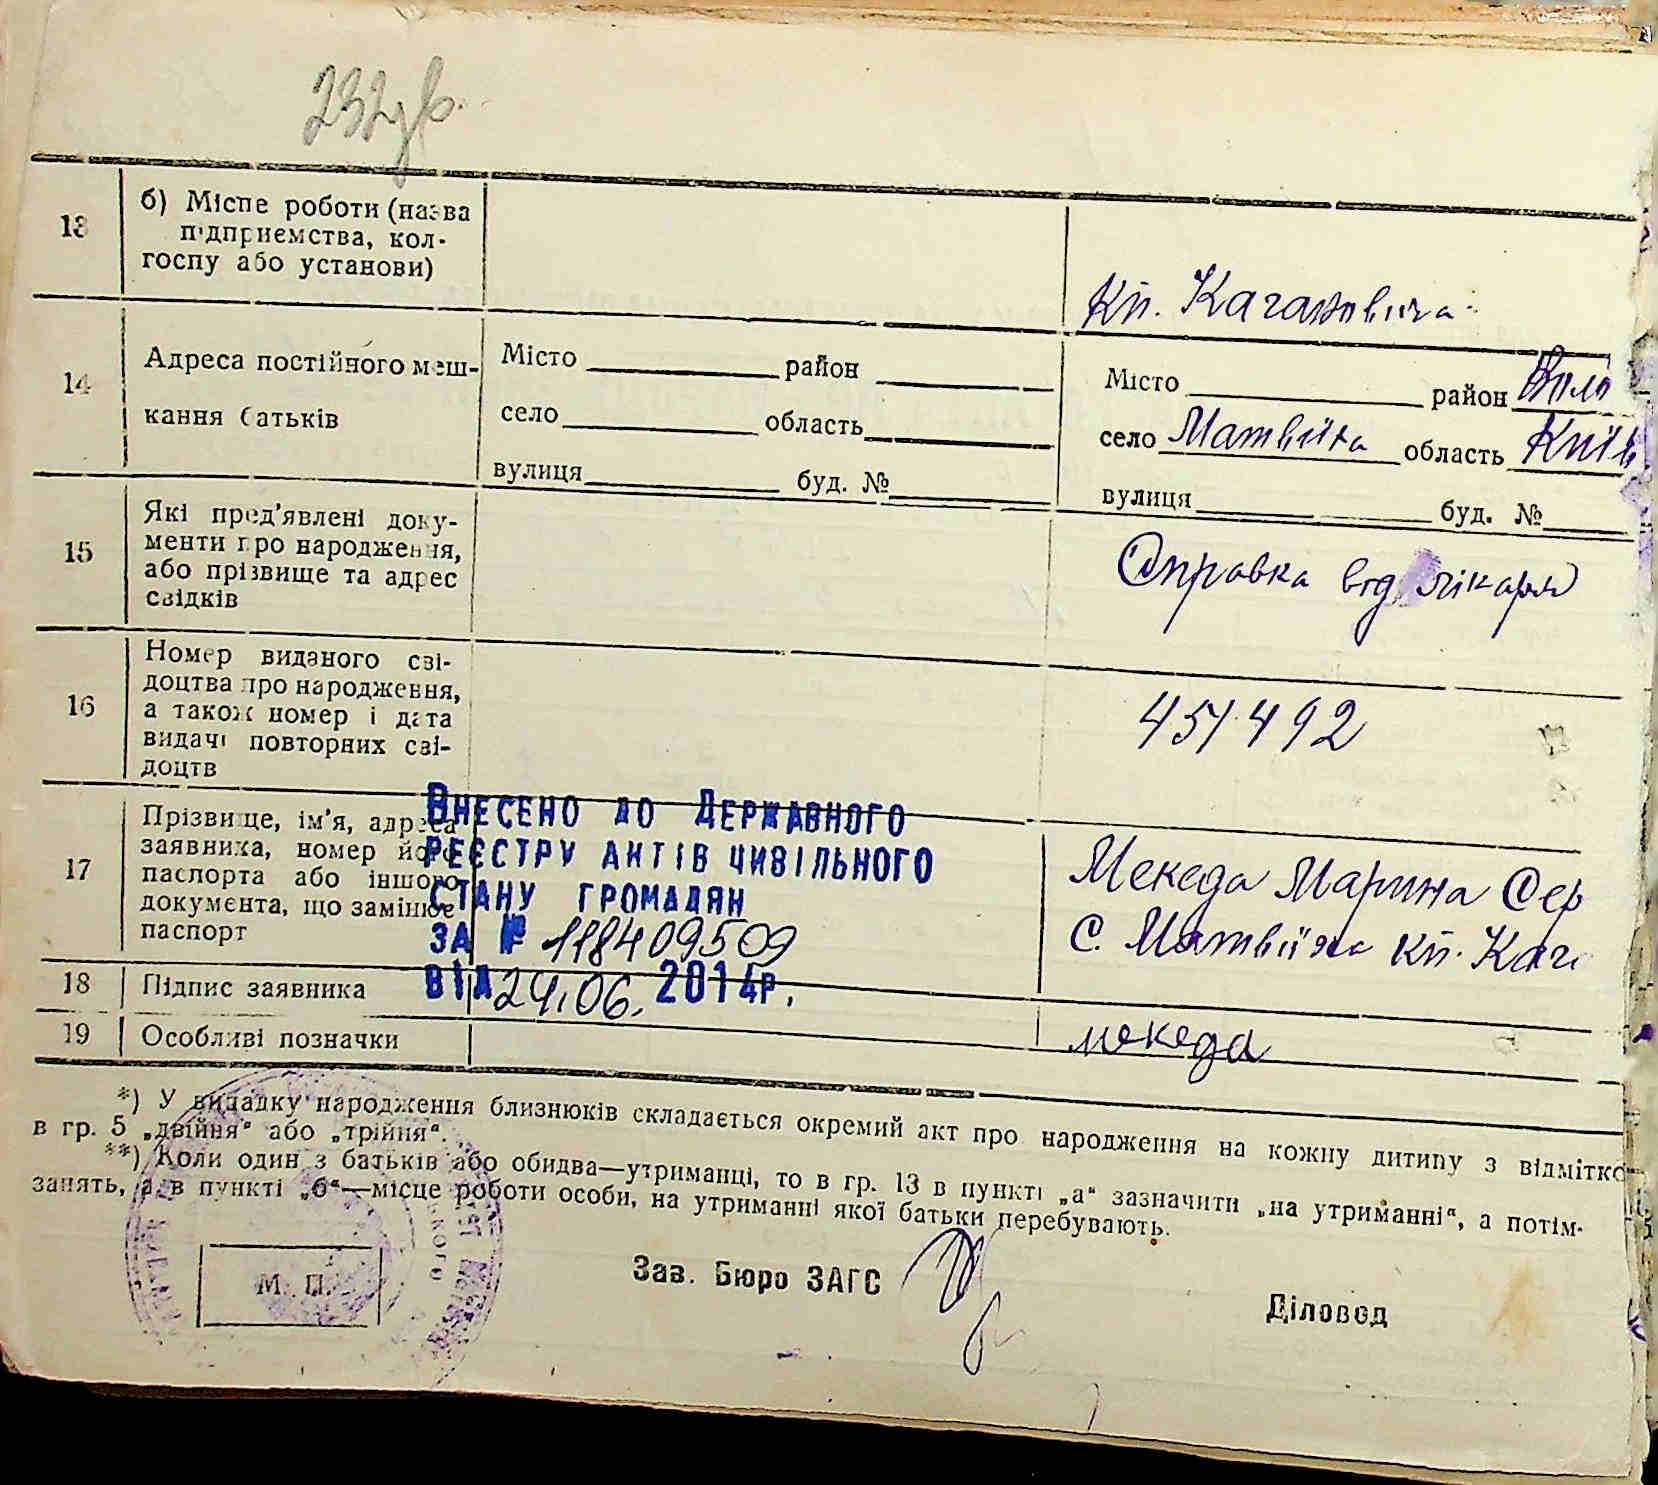 232 зв.
13
б) Місце роботи (назва
підприємства, кол-
госпу або установи)
Кп. Кагановича
14
Адреса постійного меш-
кання батьків
Місто район
село область
вулиця буд. №
Місто район Воло
село Матвіїха область Київ
вулиця буд. №
15
Які пред'явлені доку-
менти про народження,
або прізвище та адрес
свідків
Справка від лікаря
16
Номер виданого сві-
доцтва про народження,
а також номер і дата
видачі повторних сві-
доцтв
451492
17
Прізвище, ім'я, адреса
заявника, номер його
паспорта або іншого
документа, що замінює
паспорт
Мекеда Марина Сер
С. Матвіїха кп. Каг
ВНЕСЕНО ДО ДЕРЖАВНОГО
РЕЄСТРУ АКТІВ ЦИВІЛЬНОГО
СТАНУ ГРОМАДЯН
ЗА № 118409509
ВІД 24.06. 2014р.
18
Підпис заявника
мекеда
19
Особливі позначки
*) У випадку народження близнюків складається окремий акт про народження на кожну дитину з відмітко
в гр. 5 „двійня“ або „трійня“.
**) Коли один з батьків або обидва—утриманці, то в гр. 13 в пункті „а“ зазначити „на утриманні“, а потім-
занять, а в пункті „б“—місце роботи особи, на утриманні якої батьки перебувають.
М. П.
Зав. Бюро ЗАГС
Діловод